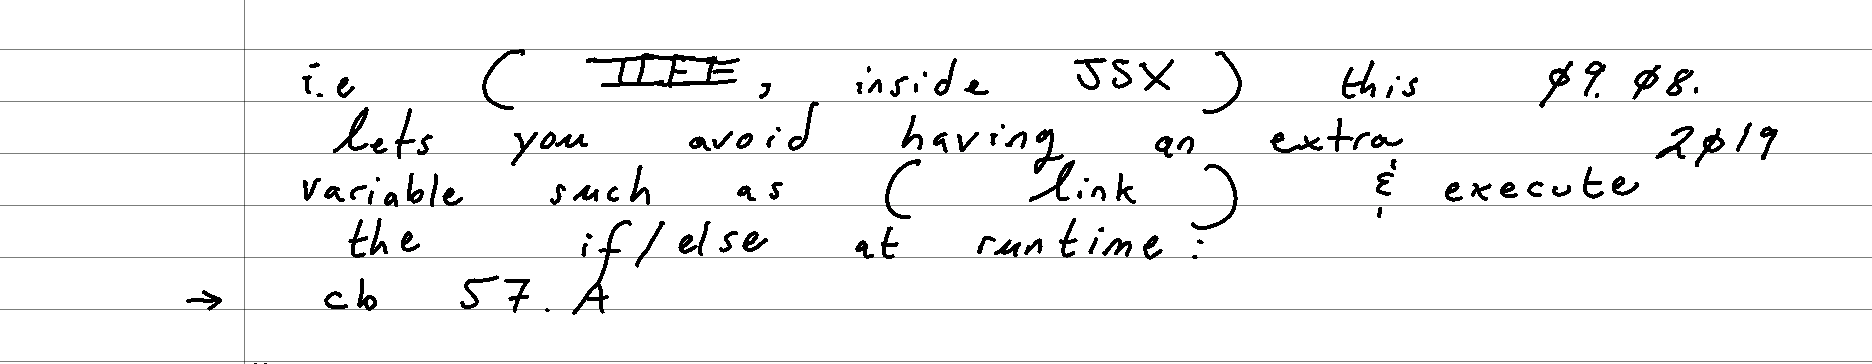 i.e ( IIFE, inside JSX ) this ø9. ø8.
lets you avoid having an extra 2ø19
variable such as ( link ) & execute
the if/else at runtime:
→ cb 57. A